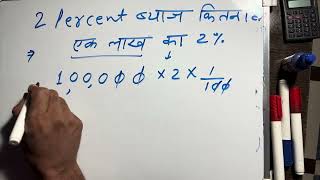 2 Percent ब्याज कितना
⇒ एक लाख का 2%
1,00,000 × 2 × 1/100